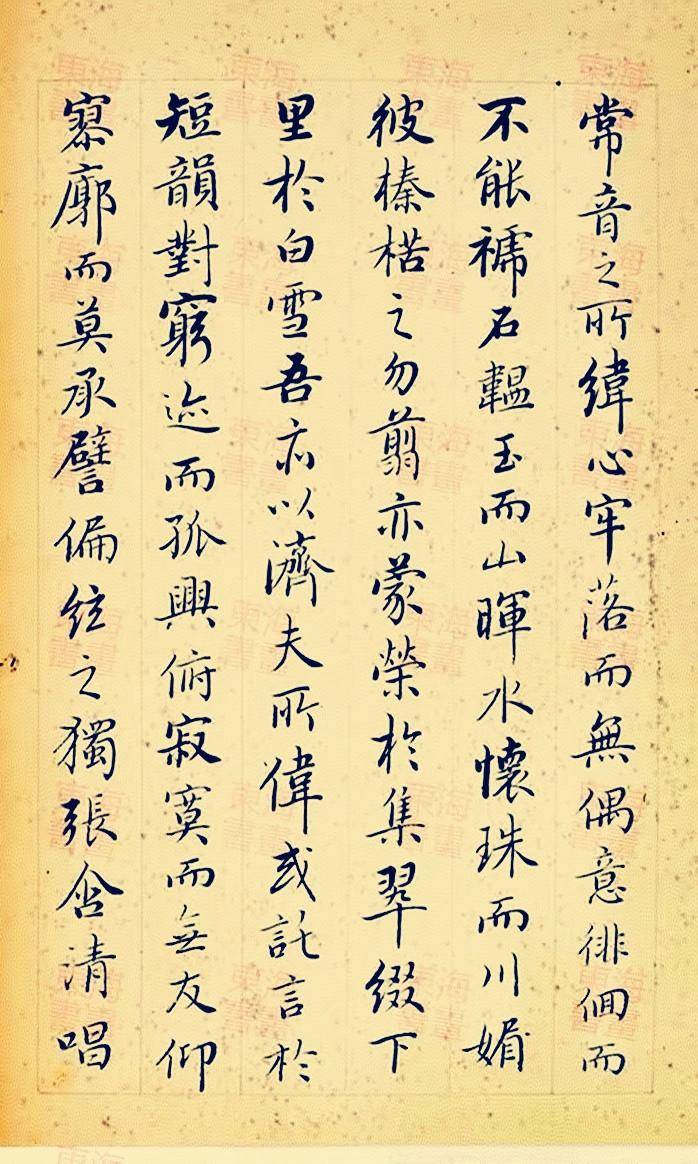 常音之所緯心牢落而無偶意徘徊而
不能褫石韞玉而山暉水懷珠而川媚
彼榛楛之勿翦亦蒙榮於集翠綴下
里於白雪吾亦以濟夫所偉或託言於
短韻對窮迹而孤興俯寂寞而無友仰
寮廓而莫承譬偏絃之獨張含清唱